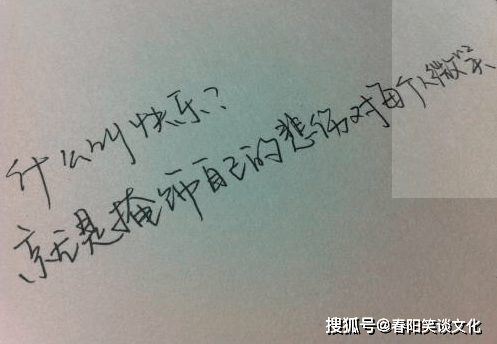 什么叫快乐？
就是掩饰自己的悲伤对每个人微笑
搜狐号@春阳笑谈文化